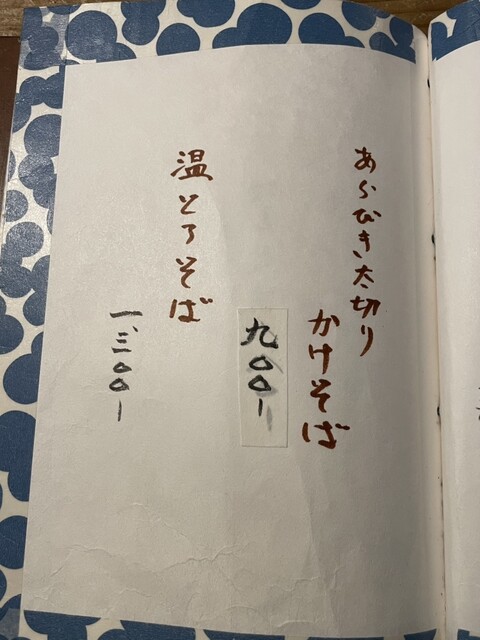 あらびき太切り
かけそば
九〇〇-
温とろそば
一、三〇〇-